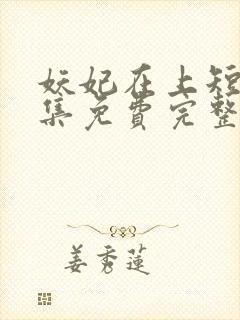 妖妃在上短
集免费完整
姜秀莲